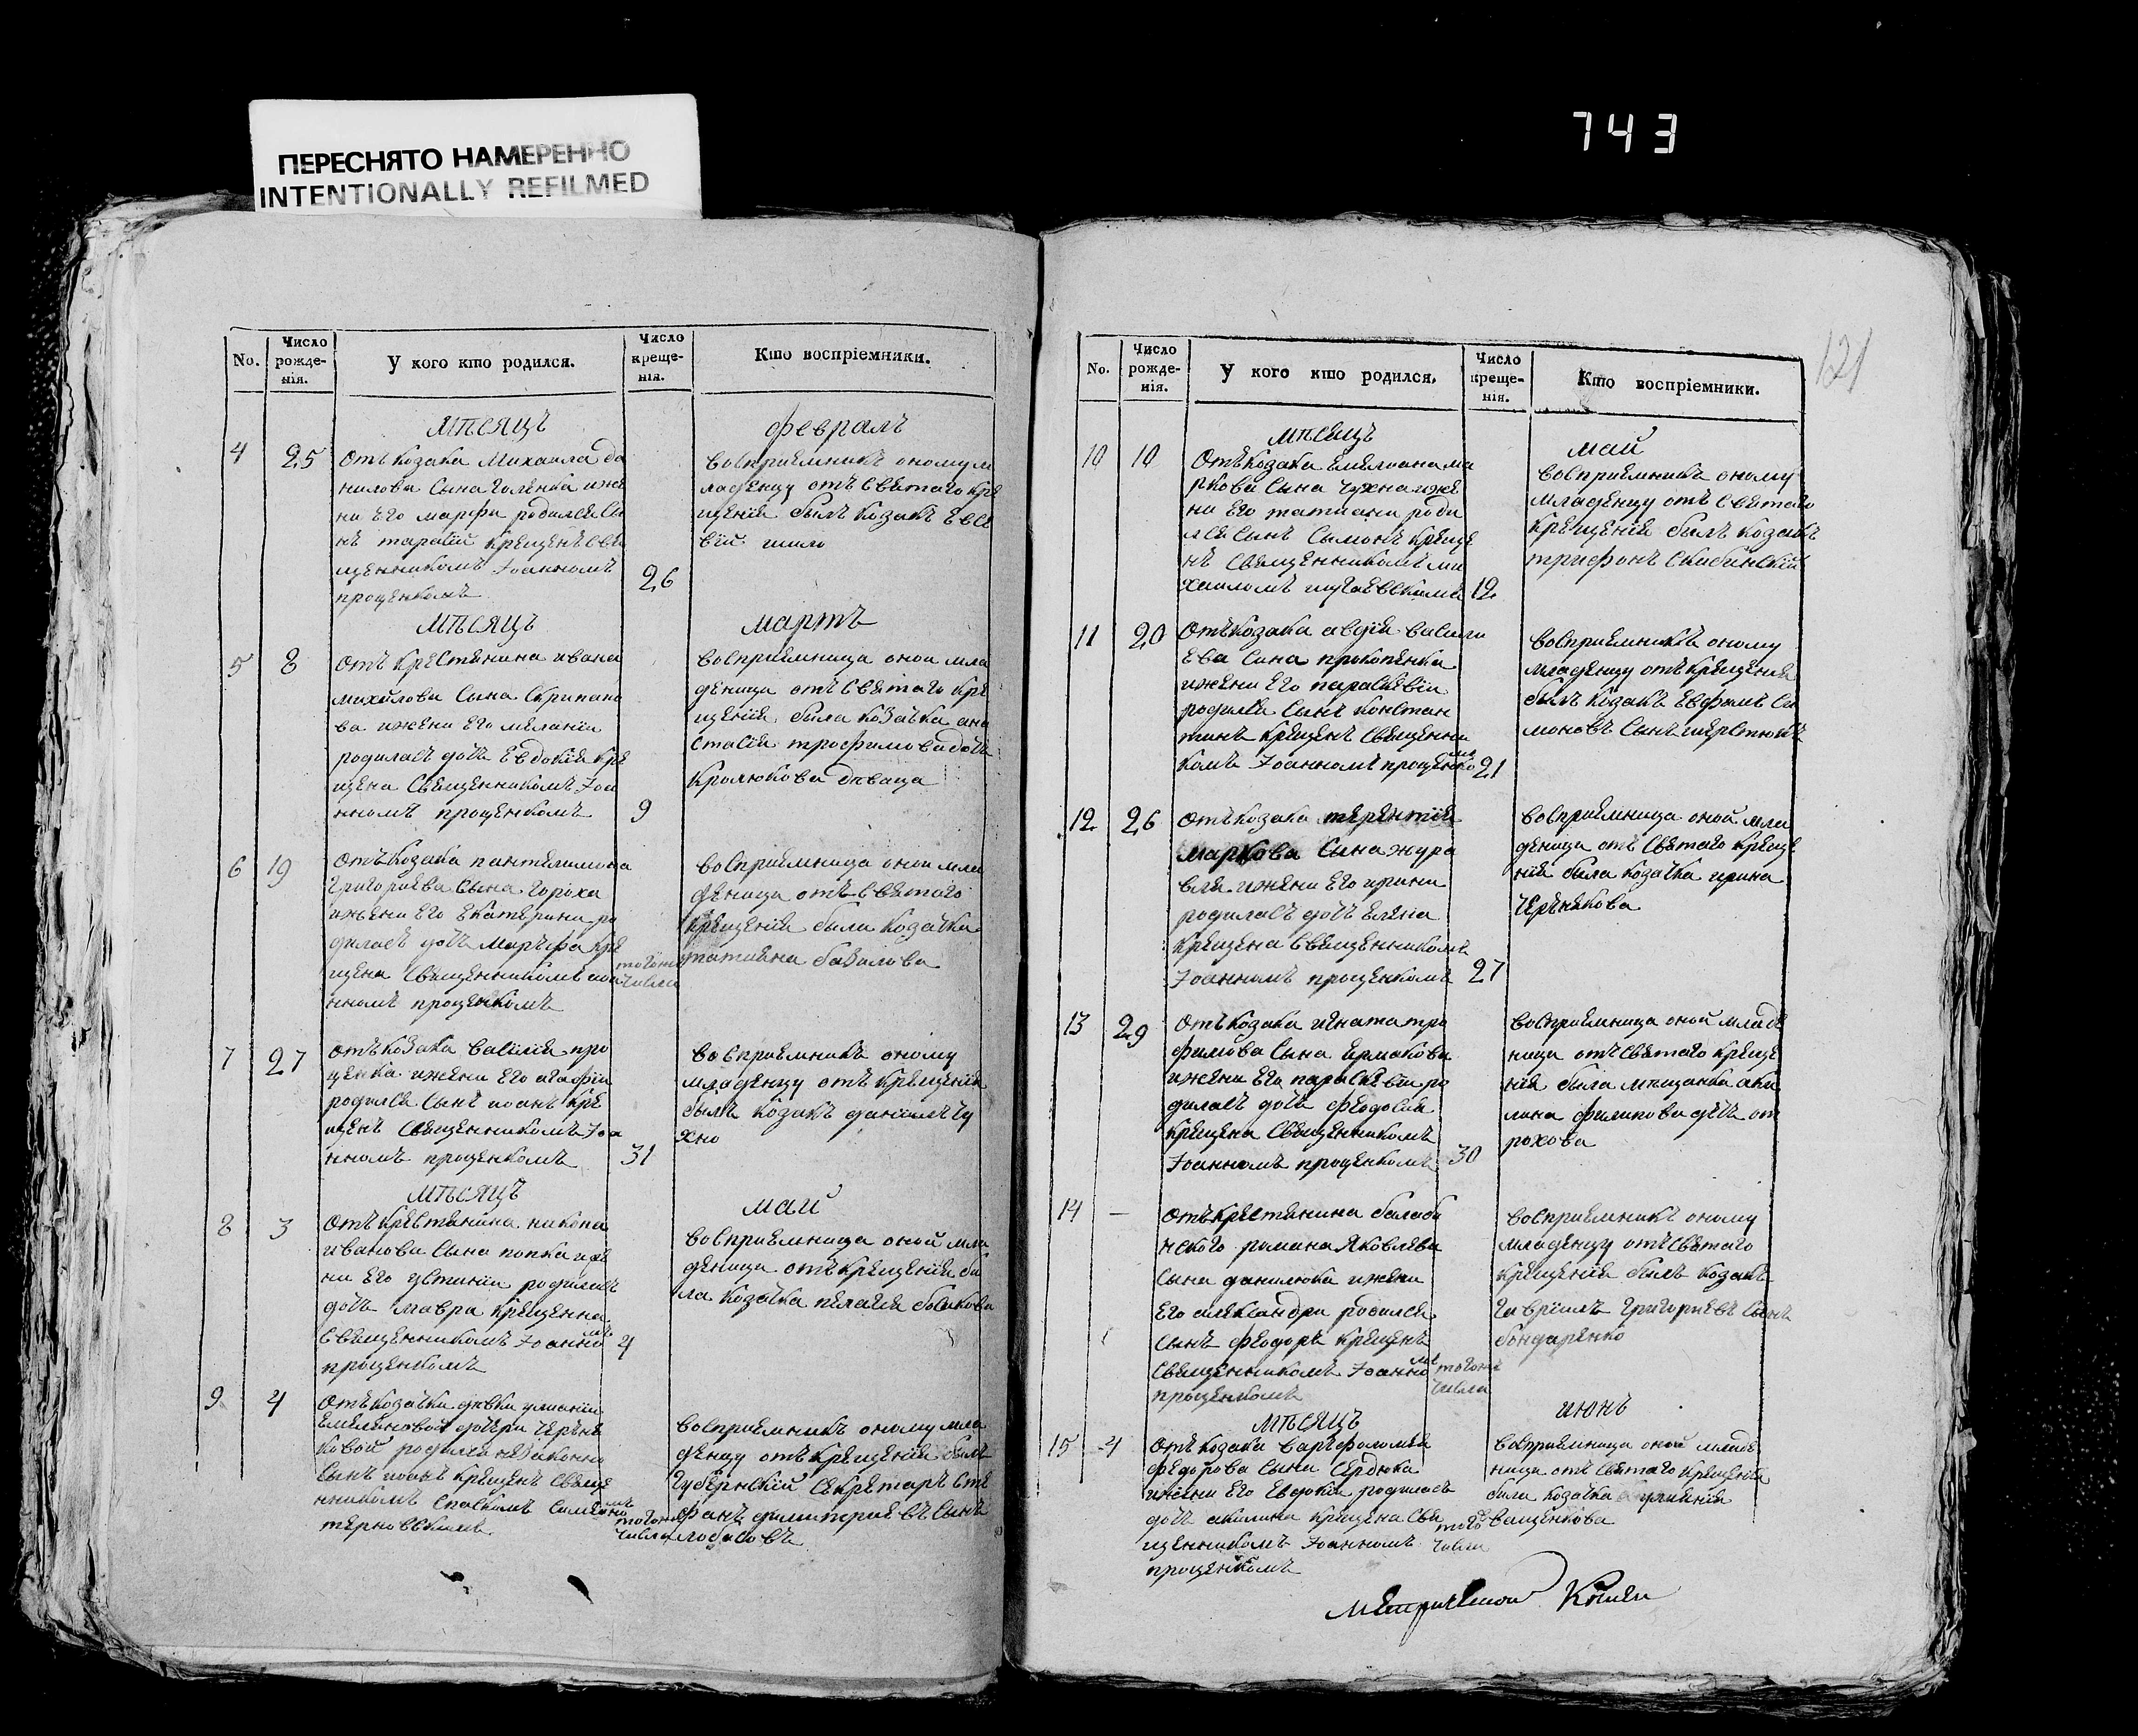 ПЕРЕСНЯТО НАМЕРЕННО
INTENTIONALLY REFILMED
743
No.
Число рожде-нія.
У кого кто родился.
Число креще-нія.
Кто воспріемники.
мѣсяцъ
февраль
4
25
Отъ козака Михаила да
нилова Сына Голенка ижѣ
ни Его марфи родился Сы
нъ тарасій крещенъ Свя
щенникомъ Іоанномъ
проценкомъ
26
восприемникъ оному м
ладенцу отъ Святаго кре
щенія былъ козакъ Евсе
вій шило
мѣсяцъ
мартъ
5
8
отъ крестянина ивана
михайлова Сына Скрипано
ва ижени Его меланіи
родилась дочъ Евдокія кре
щена Священникомъ Іоа
нномъ проценкомъ
9
восприемница оной мла
деница отъ Святаго кре
щенія была козачка ана
стасія трофимова дочъ
Кролюкова дѣвица
6
19
Отъ козака пантелимона
Григориева Сына гороха
ижени Его Екатерини ро
дилась дочъ Маръфа кре
щена Священникомъ иоа
нномъ проценкомъ
тогоже
числа
восприемница оной мла
деница отъ Святаго
крещенія была козачка
татияна бабилова
7
27
отъ козака василія про
ценка ижени Его агафіи
родился Сынъ иоанъ кре
щенъ Священникомъ Іоа
нномъ проценкомъ
31
восприемникъ оному
младенцу отъ крещенія
былъ козакъ даніилъ чу
хно
мѣсяцъ
май
8
3
Отъ крестянина никона
иванова Сына попка иже
ни Его устиніи родилась
дочъ мавра крещенна
Священникомъ Іоанномъ
проценкомъ
4
восприемница оной мла
деница отъ крещенія бы
ла козачка пелагія
9
4
Отъ козачки дѣвки улианіи
Емеляновой дочери Черъня
ковой родился незаконно
Сынъ иоанъ крещенъ Свяще
нникомъ Спаскимъ Симеономъ
терновскимъ
тогоже
числа
восприемникъ оному мла
денцу отъ крещенія былъ
Губернскій Секретаръ Сте
фанъ димитриевъ Сынъ
лобасовъ
121
No.
Число рожде-нія.
У кого кто родился.
Число креще-нія.
Кто воспріемники.
мѣсяцъ
май
10
10
Отъ козака Емелиана ма
ркова Сына чухна иже
ни Его татиани роди
лся Сынъ Симонъ креще
нъ Священникомъ ми
хаиломъ
12
восприемникъ оному
младенцу отъ Святаго
крещенія былъ козакъ
трифонъ Скибинскій
11
20
Отъ козака авдія васили
Ева Сина прокопенка
ижени Его параскевіи
родился Сынъ констан
тинъ крещенъ Священни
комъ Іоанномъ проценкомъ
21
восприемникъ оному
младенцу отъ крещенія
былъ козакъ Евфимъ Си
моновъ Сынъ шерстюкъ
12
26
Отъ козака терентія
маркова Сина жура
вля ижени Его ирини
родилась дочъ Елена
крещена Священникомъ
Іоанномъ проценкомъ
27
восприемница оной мла
деница отъ Святаго креще
нія была козачка ирина
Черънякова
13
29
Отъ козака игната тро
фимова Сына Ермакова
ижени Его параскевіи ро
дилась дочъ феодосия
крещена Священникомъ
Іоанномъ проценкомъ
30
восприемница оной младе
ница отъ Святаго креще
нія была мѣщанка аки
лина филипова дочъ от
рохова
14
—
Отъ крестянина балаби
нского романа Яковлева
Сына данилюка ижени
Его александри родился
Сынъ феодоръ крещенъ
Священникомъ Іоанномъ
проценкомъ
тогоже
числа
восприемникъ оному
младенцу отъ Святаго
крещенія былъ козакъ
Гавріилъ Григориевъ Сынъ
бондаренко
мѣсяцъ
июнь
15
4
Отъ козака варъфоломея
федорова Сына Сердюка
ижени Его Евдокіи родилась
дочъ акилина крещена Свя
щенникомъ Іоанномъ
проценкомъ
того
числа
восприемница оной младе
ница отъ Святаго крещенія
была козачка улиянія
ващенкова
метрической Книги